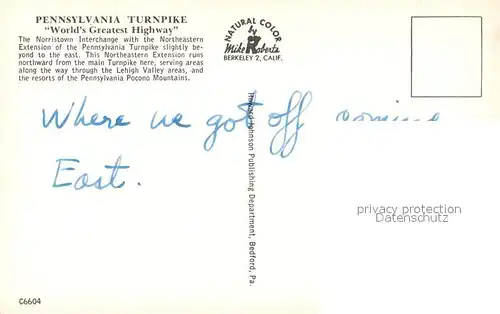 PENNSYLVANIA TURNPIKE
"World's Greatest Highway"
The Norristown Interchange with the Northeastern
Extension of the Pennsylvania Turnpike slightly be-
yond to the east. This Northeastern Extension runs
northward from the main Turnpike here, serving areas
along the way through the Lehigh Valley areas, and
the resorts of the Pennsylvania Pocono Mountains.
NATURAL COLOR
by
Mike Roberts
BERKELEY 2, CALIF.
Where we got off coming
East.
Johnson Publishing Department, Bedford, Pa.
privacy protection
Datenschutz
C6604